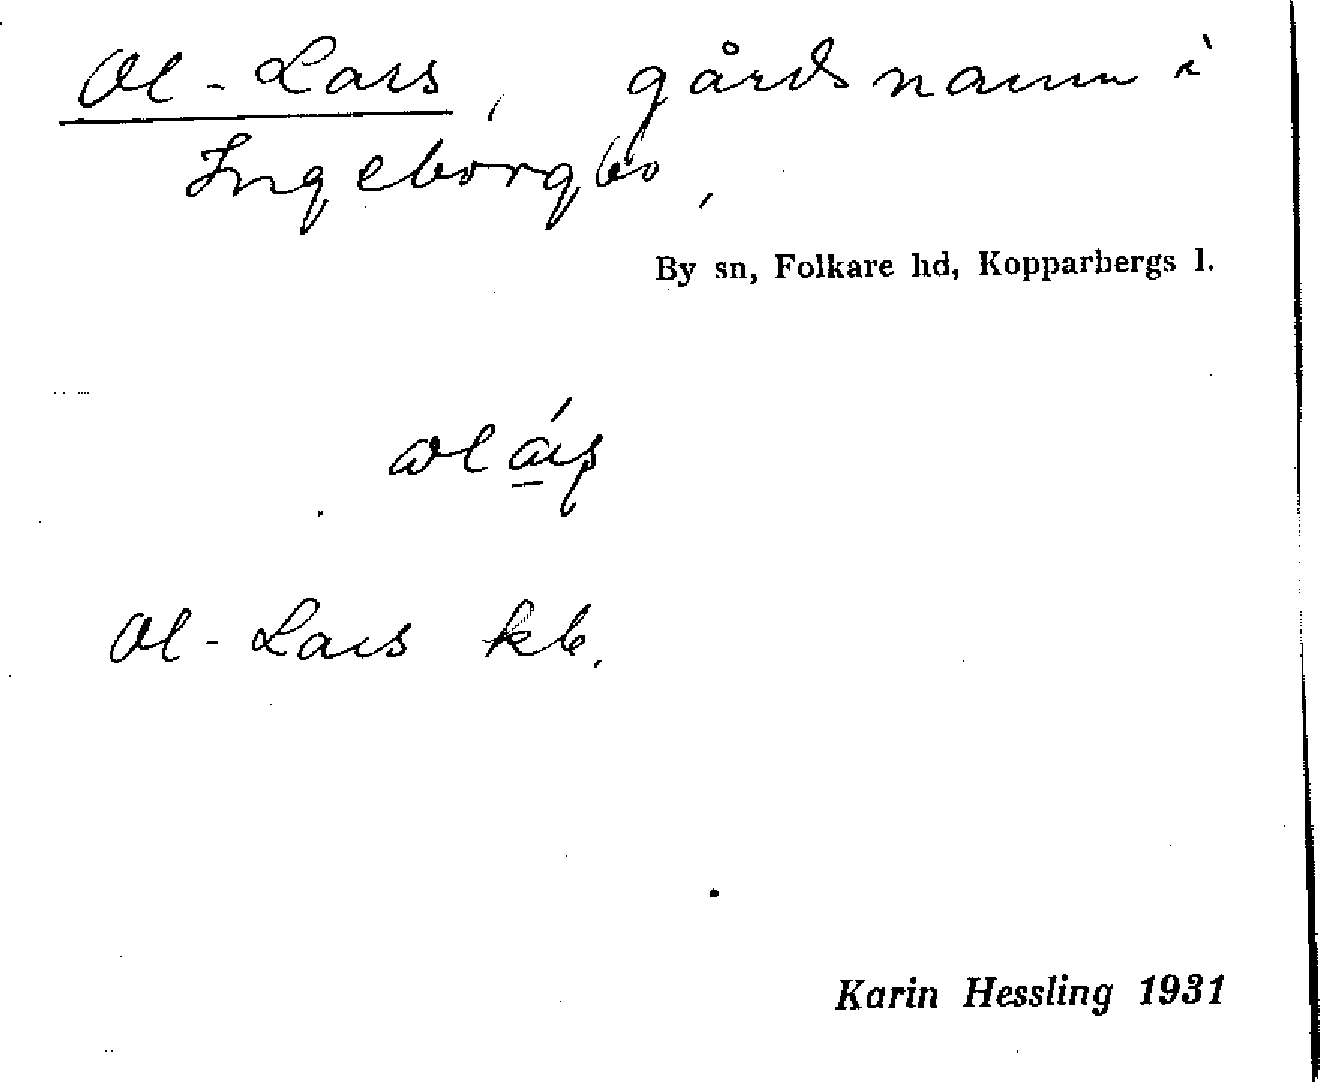 Ol-Lars, gårdsnamn i
Ingeborgbo,
By sn, Folkare hd, Kopparbergs l.
Ol-Lars kb.
Karin Hessling 1931